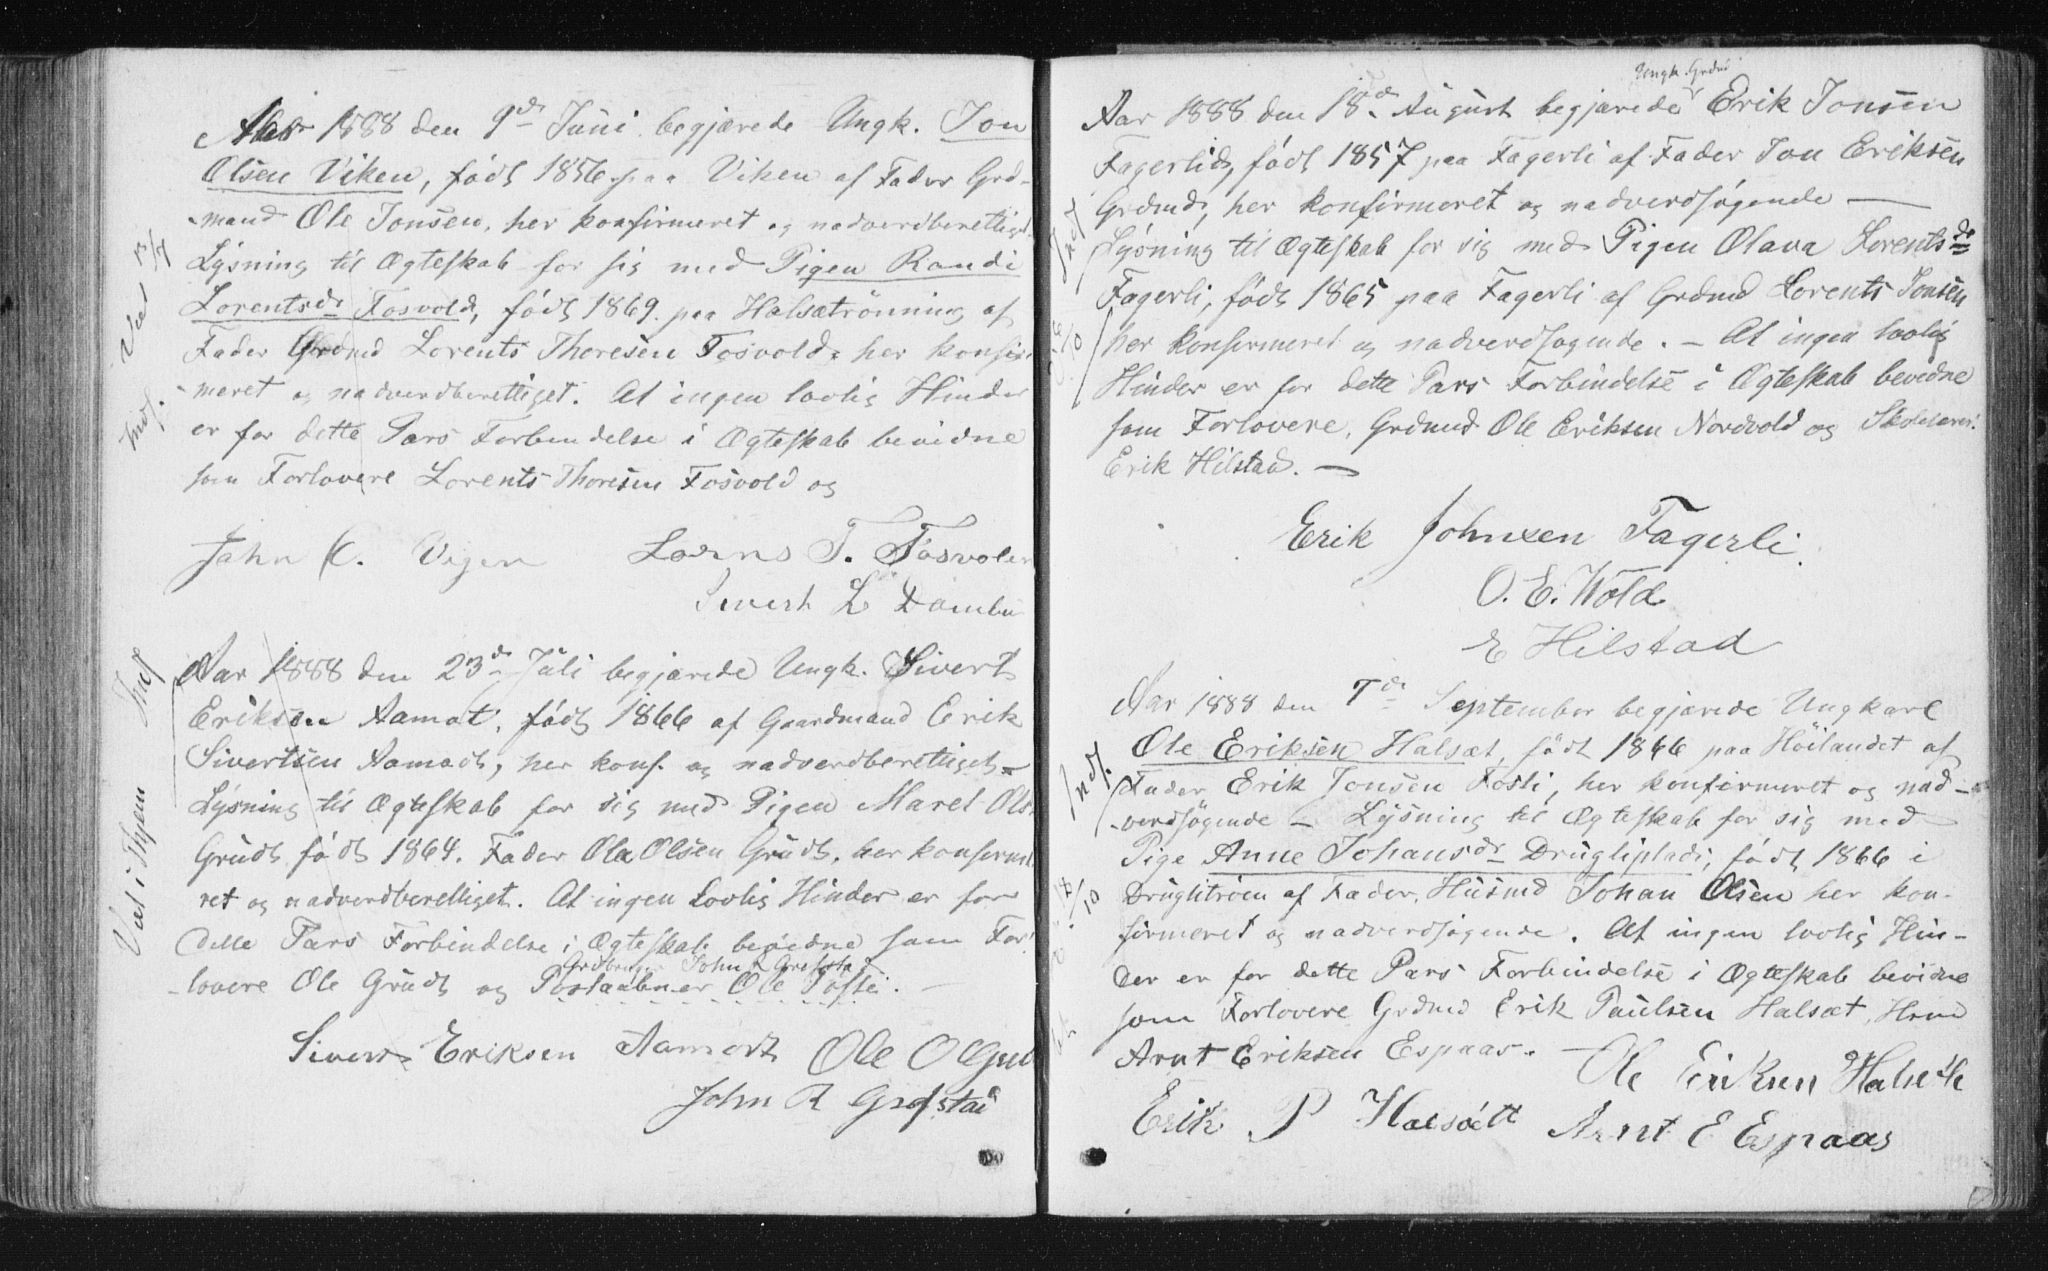 Aar 1888 den 9de Juni begjærede Ungk. Jon
Olsen Viken, født 1856 paa Viken af Fader Grd-
mand Ole Jonsen, her konfirmeret og nadverdberettiget
Lysning til Ægteskab for sig med Pigen Randi
Lorentsdr Fosvold, født 1869 paa Halsætrønning af
Fader Grdmd Lorents Thoresen Fosvold, her konfir-
meret og nadverdberettiget. At ingen lovlig Hinder
er for dette Pars Forbindelse i Ægteskab bevidne
som Forlovere Lorents Thoresen Fosvold og
Jahn Vigen Lorns T. Fosvolen
Sivert L Dombu
Indf. Viet 13/7
Aar 1888 den 23de Juli begjærede Ungk. Sivert
Eriksen Aamot, født 1866 af Gaardmand Erik
Sivertsen Aamodt, her konf. og nadverdberettiget
Lysning til Ægteskab for sig med Pigen Maret Ols
Grudt født 1864. Fader Ole Olsen Grudt, her konfirme
ret og nadverdberettiget. At ingen Lovlig Hinder er for
dette Pars Forbindelse i Ægteskab bevidne som For-
Grdbruger John R Grefsta
lovere Ole Grudt og Postaabner Ole Tofte.
Sivert Eriksen Aamodt Ole O Grud
John R Grefstad
Viet i Thjem Indf
Ungk. Grdmd
Aar 1888 den 18de August begjærede Erik Jonsen
Fagerlid, født 1857 paa Fagerli af Fader Jon Eriksen
Grdmd, her konfirmeret og nadverdsøgende —
Lysning til Ægteskab for sig med Pigen Olava Lorentsdr
Fagerli, født 1865 paa Fagerli af Grdmd Lorents Jonsen
her konfirmeret og nadverdsøgende. - At ingen lovlig
Hinder er for dette Pars Forbindelse i Ægteskab bevidne
som Forlovere, Grdmd Ole Eriksen Nordvold og Skolelærer
Erik Hilstad. —
Erik Johnsen Fagerli
O. E. Wold
E Hilstad
Indf
Aar 1888 den 7de September begjærede Ungkarl
Ole Eriksen Halsæt, født 1866 paa Höilandet af
Fader Erik Jonsen Fosli, her konfirmeret og nad-
verdsøgende - Lysning til Ægteskab for sig med
Pige Anne Johansdr Drugliplads, født 1866 i
Druglitrøen af Fader, Husmd Johan Olsen her kon-
firmeret og nadverdsøgende. At ingen lovlig Hin-
der er for dette Pars Forbindelse i Ægteskab bevidne
som Forlovere Grdmd Erik Paulsen Halsæt, Hsmd
Arnt Eriksen Espaas.
Ole Eriksen Halseth
Erik P Halsætt Arnt E Espaas
Indf.